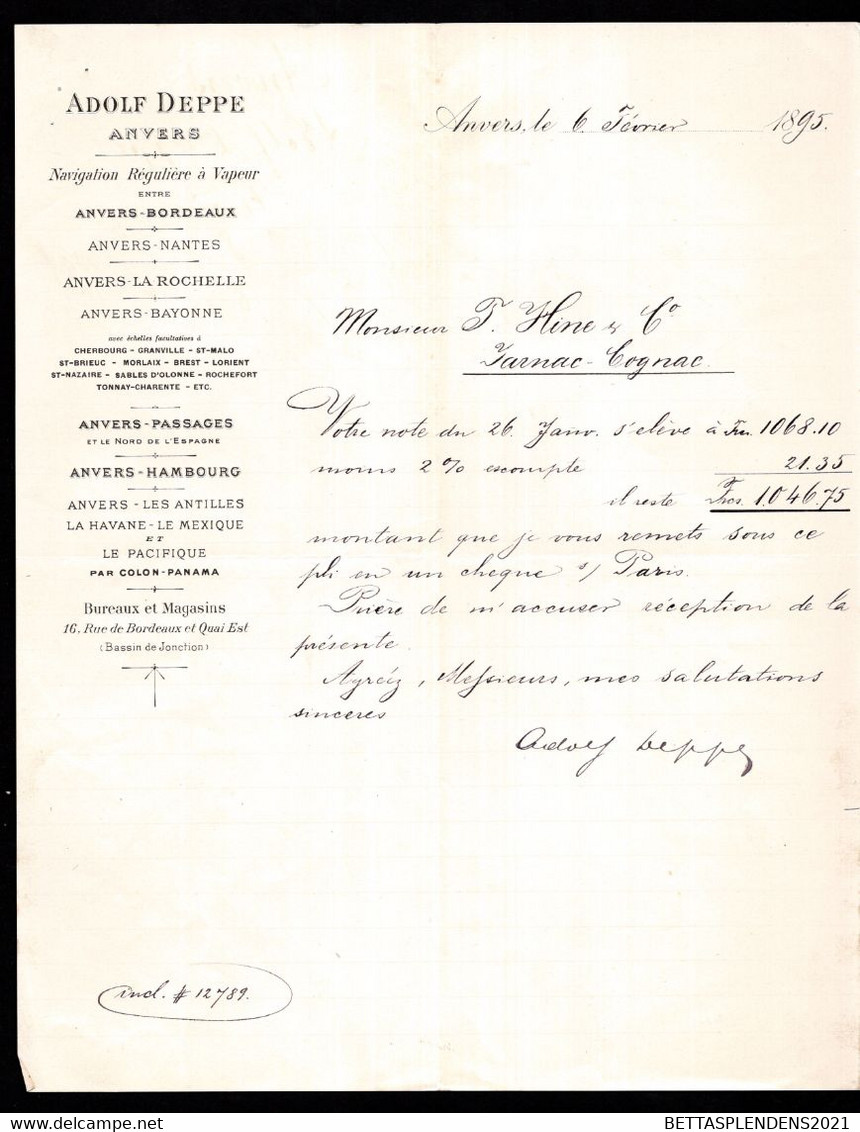 ADOLF DEPPE
ANVERS
Navigation Régulière à Vapeur
ENTRE
ANVERS-BORDEAUX
ANVERS-NANTES
ANVERS-LA ROCHELLE
ANVERS-BAYONNE
avec échelles facultatives à
CHERBOURG - GRANVILLE - ST-MALO
ST-BRIEUC - MORLAIX - BREST - LORIENT
ST-NAZAIRE - SABLES D'OLONNE - ROCHEFORT
TONNAY-CHARENTE - ETC.
ANVERS-PASSAGES
ET LE NORD DE L'ESPAGNE
ANVERS-HAMBOURG
ANVERS - LES ANTILLES
LA HAVANE - LE MEXIQUE
ET
LE PACIFIQUE
PAR COLON-PANAMA
Bureaux et Magasins
16, Rue de Bordeaux et Quai Est
(Bassin de Jonction)
Anvers, le 6 Février 1895.
Monsieur T. Hine & Co
Jarnac-Cognac.
Votre note du 26. Janv. s'elève à Frs. 1068.10
moins 2% escompte 21.35
il reste Frcs. 1.046.75
montant que je vous remets sous ce
pli en un cheque s/ Paris.
Prière de m'accuser réception de la
présente.
Agréez, Messieurs, mes salutations
sinceres
Adolf Deppe
incl. # 12789.
BETTASPLENDENS2021